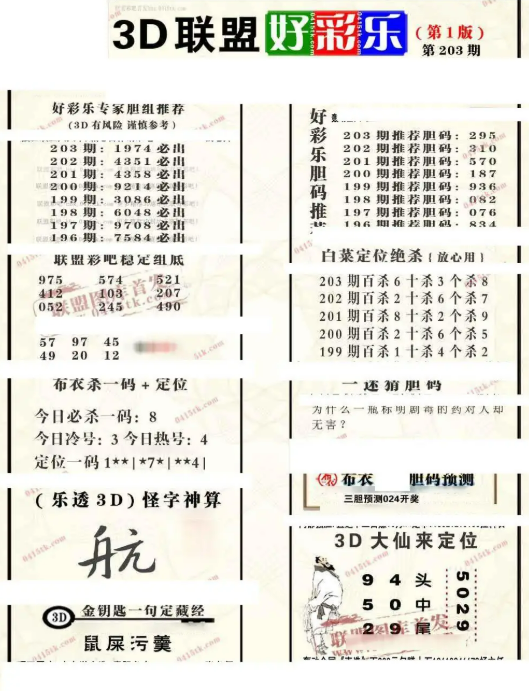 3D联盟 好彩乐 (第1版)
第203期
好彩乐专家胆组推荐
(3D有风险 谨慎参考)
203期: 1974必出
202期: 4351必出
201期: 4358必出
200期: 9214必出
199期: 3086必出
198期: 6048必出
197期: 9708必出
196期: 7584必出
联盟彩吧稳定组底
975 574 521
412 103 207
052 245 490
57 97 45
49 20 12
布衣杀一码+定位
今日必杀一码: 8
今日冷号: 3 今日热号: 4
定位一码 1**|*7*|**4|
(乐透3D) 怪字神算
金钥匙一句定藏经
3D
鼠屎污羹
好彩乐胆码推
203期推荐胆码: 295
202期推荐胆码: 310
201期推荐胆码: 570
200期推荐胆码: 187
199期推荐胆码: 936
198期推荐胆码: 082
197期推荐胆码: 076
196期推荐胆码: 834
白菜定位绝杀 (放心用)
203期百杀6十杀3个杀8
202期百杀2十杀6个杀7
201期百杀8十杀2个杀9
200期百杀2十杀6个杀5
199期百杀1十杀4个杀2
一迷猜胆码
为什么一瓶标明剧毒的药对人却
无害?
布衣 胆码预测
三胆预测024开奖
3D大仙来定位
9 4 头
5 0 中
2 9 尾
5029
0415tk.com